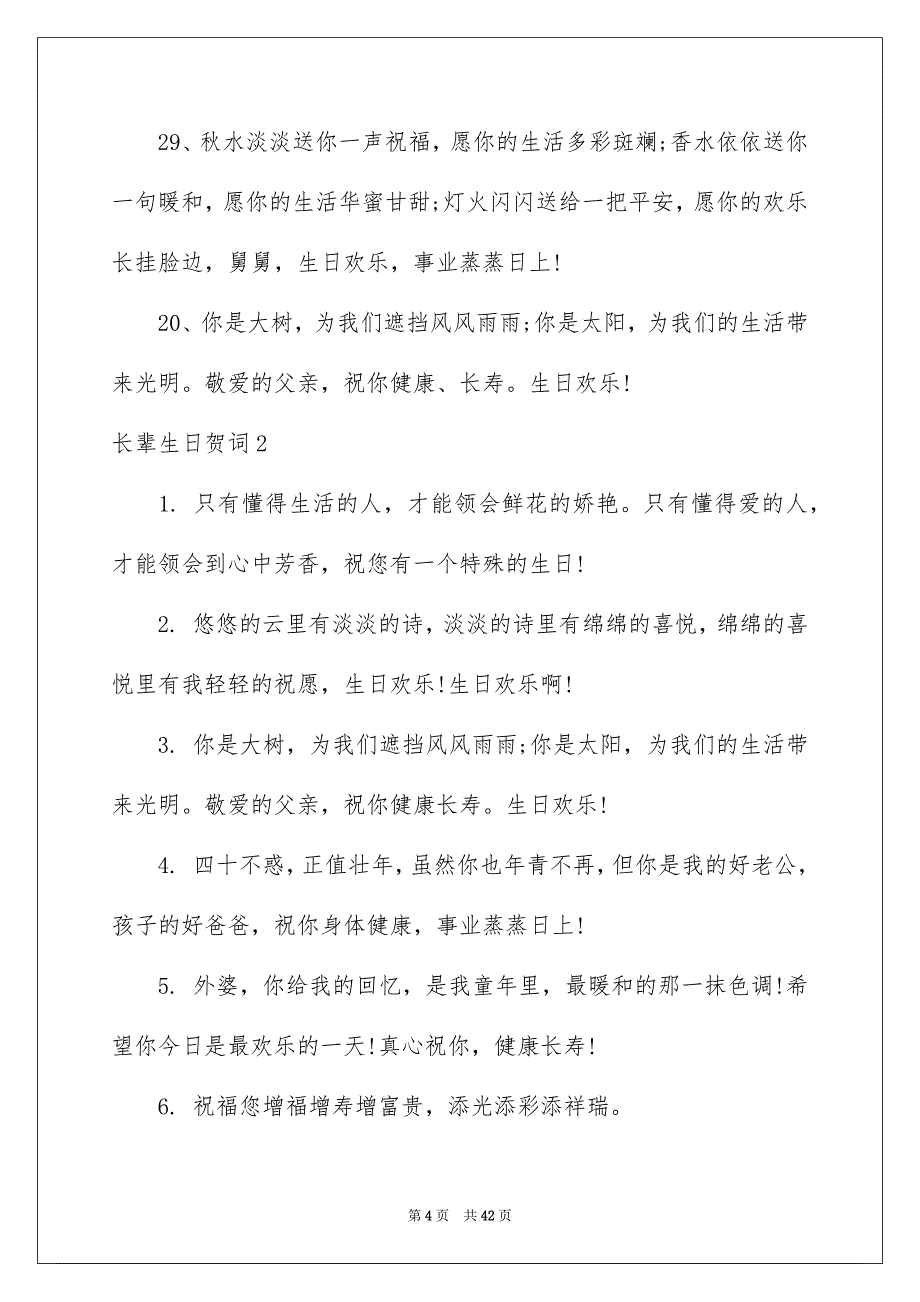 29、秋水淡淡送你一声祝福，愿你的生活多彩斑斓;香水依依送你
一句暖和，愿你的生活华蜜甘甜;灯火闪闪送给一把平安，愿你的欢乐
长挂脸边，舅舅，生日欢乐，事业蒸蒸日上!
20、你是大树，为我们遮挡风风雨雨;你是太阳，为我们的生活带
来光明。敬爱的父亲，祝你健康、长寿。生日欢乐!
长辈生日贺词2
1. 只有懂得生活的人，才能领会鲜花的娇艳。只有懂得爱的人，
才能领会到心中芳香，祝您有一个特殊的生日!
2. 悠悠的云里有淡淡的诗，淡淡的诗里有绵绵的喜悦，绵绵的喜
悦里有我轻轻的祝愿，生日欢乐!生日欢乐啊!
3. 你是大树，为我们遮挡风风雨雨;你是太阳，为我们的生活带
来光明。敬爱的父亲，祝你健康长寿。生日欢乐!
4. 四十不惑，正值壮年，虽然你也年青不再，但你是我的好老公，
孩子的好爸爸，祝你身体健康，事业蒸蒸日上!
5. 外婆，你给我的回忆，是我童年里，最暖和的那一抹色调!希
望你今日是最欢乐的一天!真心祝你，健康长寿!
6. 祝福您增福增寿增富贵，添光添彩添祥瑞。
第4页 共42页